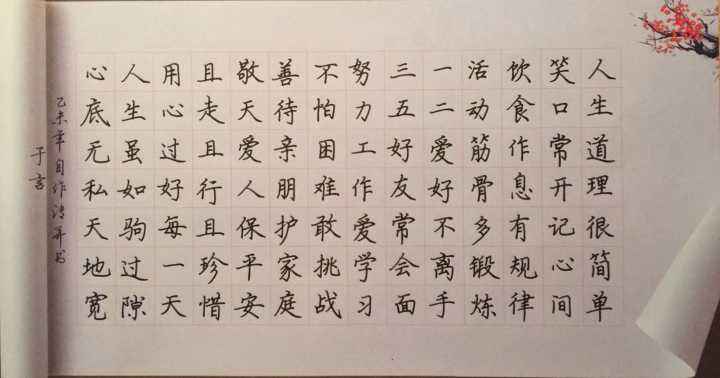 人生道理很简单
笑口常开记心间
饮食作息有规律
活动筋骨多锻炼
一二爱好不离手
三五好友常会面
努力工作爱学习
不怕困难敢挑战
善待亲朋护家庭
敬天爱人保平安
且走且行且珍惜
用心过好每一天
人生虽如驹过隙
心底无私天地宽
乙未年自作诗并书
于言